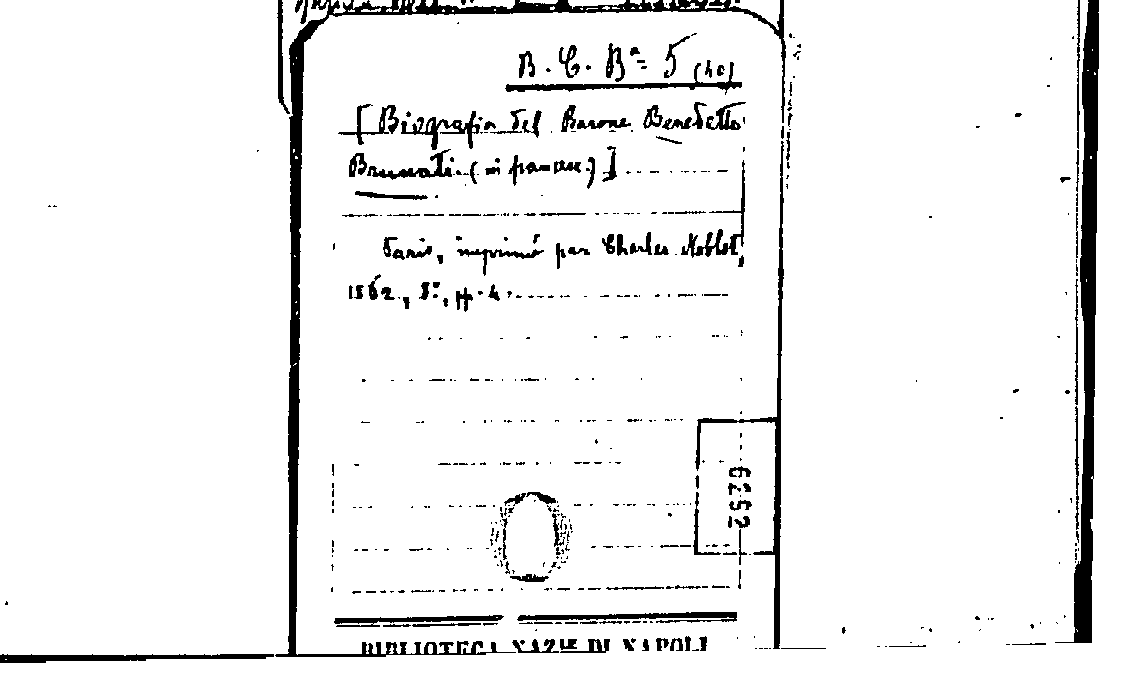 B. C. Bª 5 (40)
[Biografia del Barone Benedetto
Brunati. (in francese.)]
Paris, imprimé par Charles Noblet,
1862, 8º, pp. 4.
6252
BIBLIOTECA NAZLE DI NAPOLI